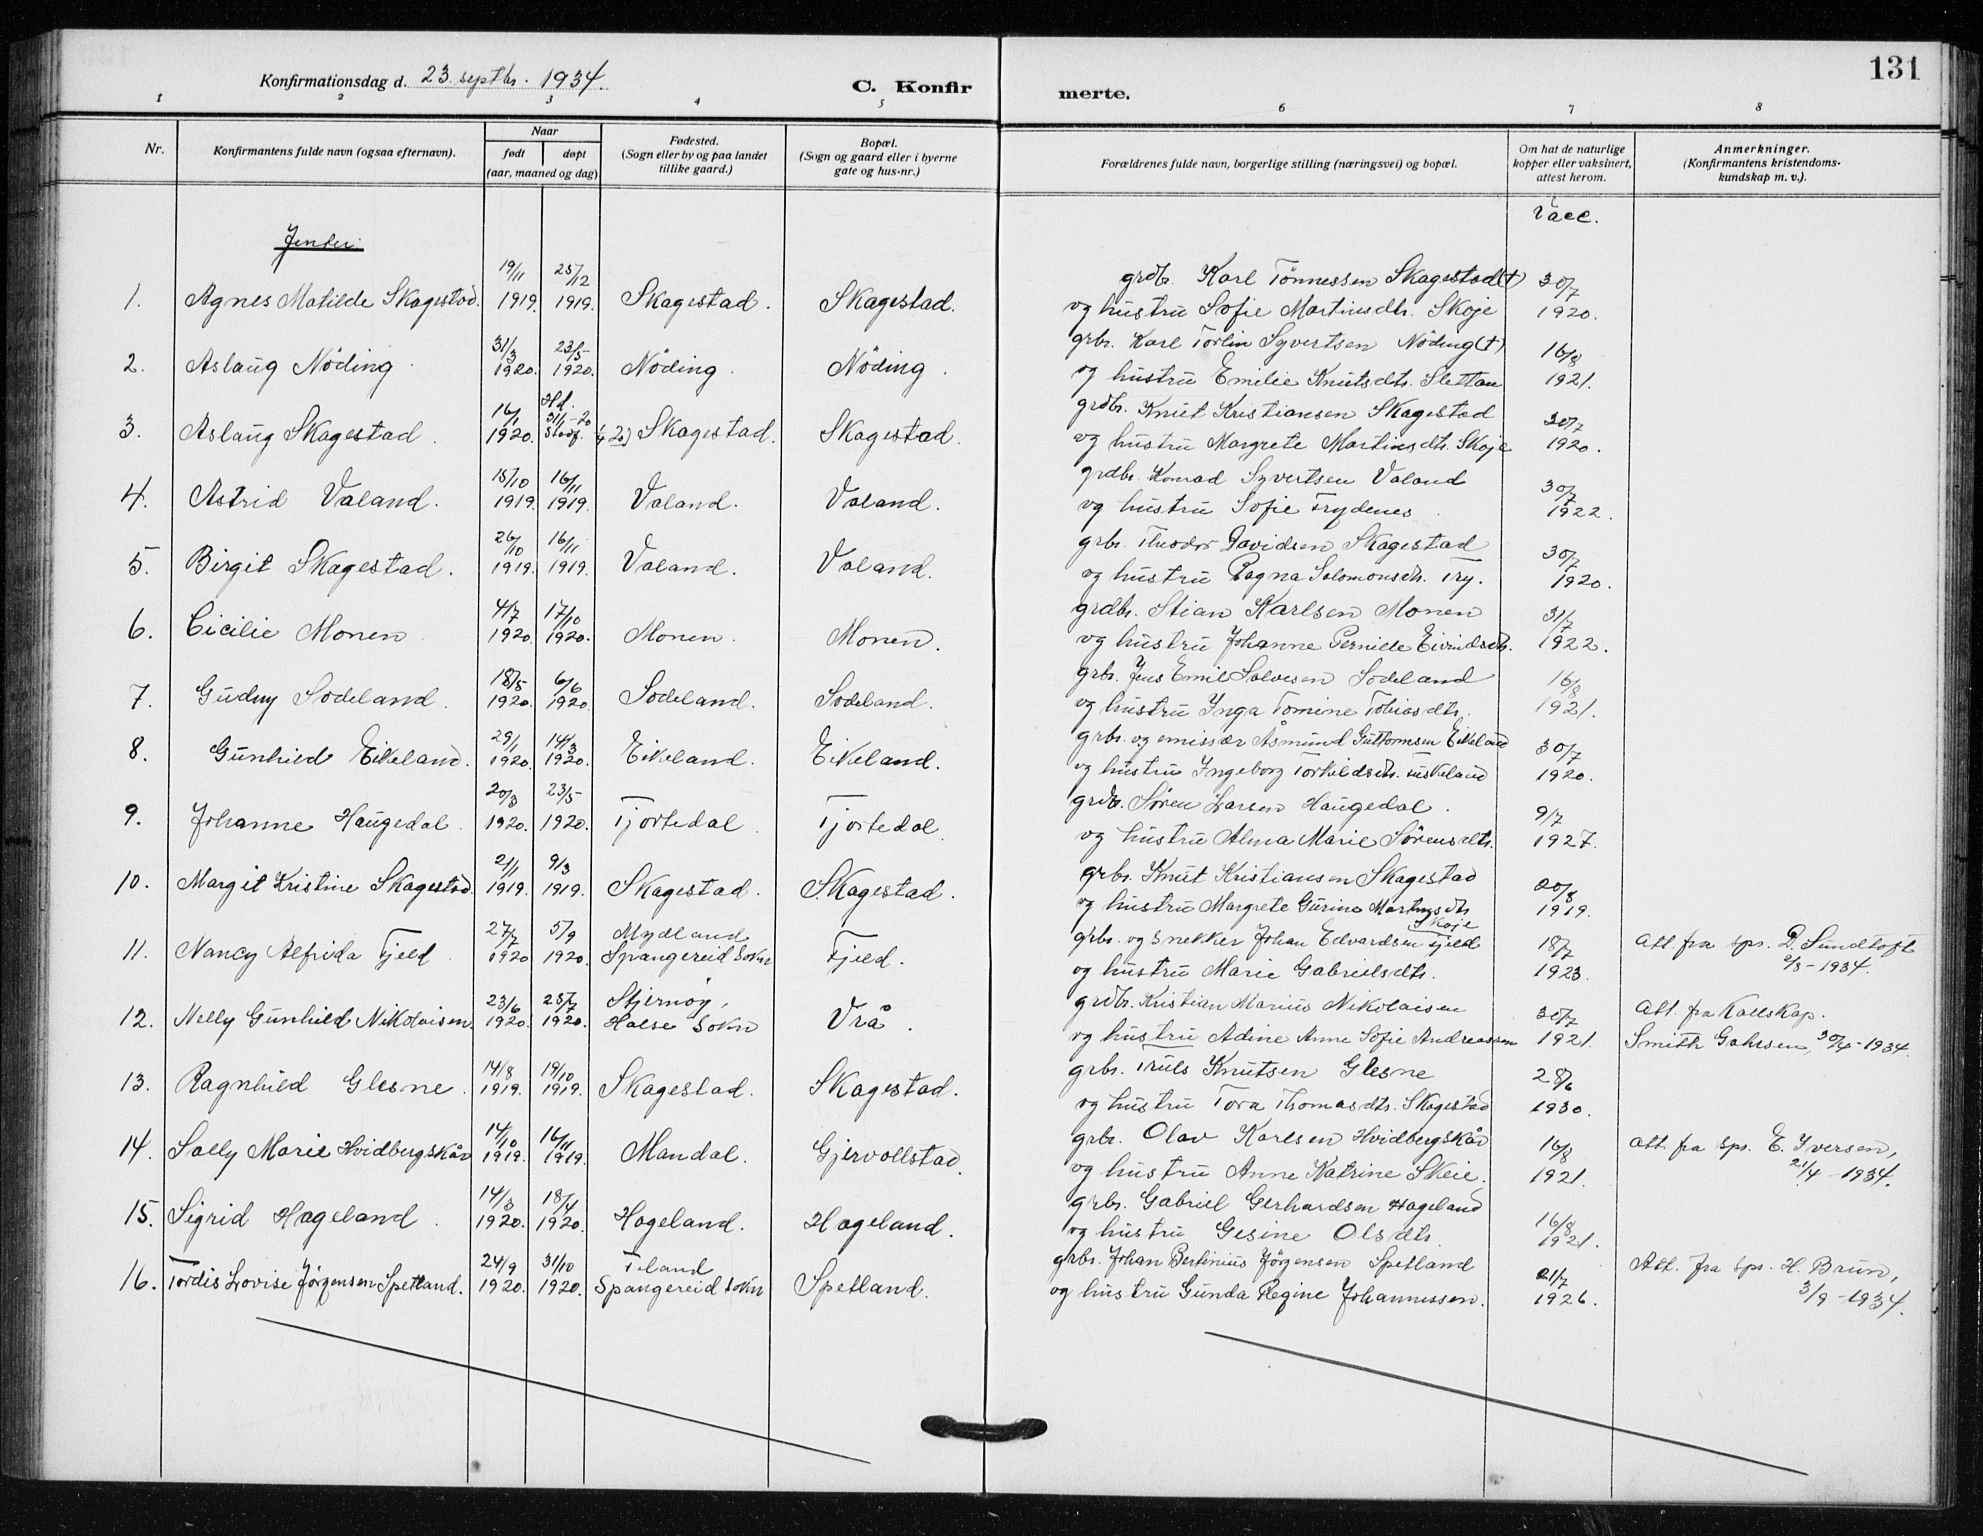 131
Konfirmationsdag d. 23. septbr. 1934.
C. Konfirmerte.
1 2 3 4 5 6 7 8
Nr. | Konfirmantens fulde navn (ogsaa efternavn). | Naar født døpt (aar, maaned og dag) | Fødested. (Sogn eller by og paa landet tillike gaard.) | Bopæl. (Sogn og gaard eller i byerne gate og hus-nr.) | Forældrenes fulde navn, borgerlige stilling (næringsvei) og bopæl. | Om hat de naturlige kopper eller vaksinert, attest herom. | Anmerkninger. (Konfirmantens kristendomskundskap m. v.).
Vacc.
Jenter:
1. Agnes Matilde Skagestad. 19/11 1919. 25/12 1919. Skagestad. Skagestad. grdbr. Karl Tönnessen Skagestad (†) 30/7
og hustru Sofie Martinsdtr. Skoje 1920.
2. Aslaug Nöding. 31/3 1920. 23/5 1920. Nöding. Nöding. grbr. Karl Torlin Syvertsen Nöding (†) 16/8
og hustru Emilie Knutsdtr. Slettan 1921.
3. Aslaug Skagestad. 16/1 1920. Hd. 31/1-20 Stadf. 1/4 20) Skagestad. Skagestad. grdbr. Knut Kristiansen Skagestad 30/7
og hustru Margrete Martinsdtr. Skoje 1920.
4. Astrid Valand. 15/10 1919. 16/11 1919. Valand. Valand. grdbr. Konrad Syvertsen Valand 30/7
og hustru Sofie Frydenes 1922.
5. Birgit Skagestad. 26/10 1919. 16/11 1919. Valand. Valand. grbr. Theodor Davidsen Skagestad 30/7
og hustru Ragna Salomonsdtr. Try. 1920.
6. Cicilie Monen 4/7 1920. 17/10 1920. Monen. Monen. grdbr. Stian Karlsen Monen 31/7
og hustru Johanne Pernille Eivindsdtr. 1922.
7. Gudny Sodeland. 18/5 1920. 6/6 1920. Sodeland. Sodeland. grbr. Jens Emil Salvesen Sodeland 16/8
og hustru Inga Tomine Tobiasdtr. 1921.
8. Gunhild Eikeland. 29/1 1920. 14/3 1920. Eikeland. Eikeland. grbr. og emissær Åsmund Guttormsen Eikeland 30/7
og hustru Ingeborg Torkildsdtr. 1920.
9. Johanne Haugedal. 20/3 1920. 23/5 1920. Tjortedal. Tjortedal. grdbr. Søren Larsen Haugedal. 9/7
og hustru Alma Marie Sörensdtr. 1927.
10. Margit Kristine Skagestad. 2/1 1919. 9/3 1919. Skagestad. Skagestad. grbr. Knut Kristiansen Skagestad 20/8
og hustru Margrete Gurine Martinsdtr. Skoje 1919.
11. Nancy Alfrida Fjeld. 27/7 1920 5/9 1920. Mydland Spangereid sokn Fjeld. grbr. og snekker Johan Edvardsen Fjeld 18/7 Att. fra spr. D. Sundtoft
og hustru Marie Gabrielsdtr. 1923. 2/3-1934.
12. Nelly Gunhild Nikolaisen. 23/6 1920. 25/7 1920. Stjernøy, Halse sokn Vrå. grdbr. Kristian Marius Nikolaisen 30/7 Att. fra Kallskap.
og hustru Adine Anne Sofie Andreassen 1921. Smith Gahrsen, 30/4-1934.
13. Ragnhild Glesne. 14/8 1919. 19/10 1919. Skagestad. Skagestad. grbr. Truls Knutsen Glesne 28/6
og hustru Tora Thomasdtr. Skagestad 1930.
14. Sally Marie Hvidbergskår 14/10 1919. 16/11 1919. Mandal. Gjervollstad. grbr. Olav Karlsen Hvidbergskår 16/8 Att. fra spr. E. Iversen,
og hustru Anne Katrine Skeie. 1921. 21/4-1934.
15. Sigrid Hageland. 14/3 1920. 18/4 1920. Hageland. Hageland. grbr. Gabriel Gerhardsen Hageland 16/8
og hustru Gesine Olsdtr. 1921.
16. Tordis Lovise Jørgensen Spetland. 24/9 1920. 31/10 1920. Spangereid sokn Spetland. grbr. Johan Bertinius Jørgensen Spetland 21/7 Att. fra spr. H. Brun,
og hustru Gunda Regine Johannessen. 1926. 3/9-1934.